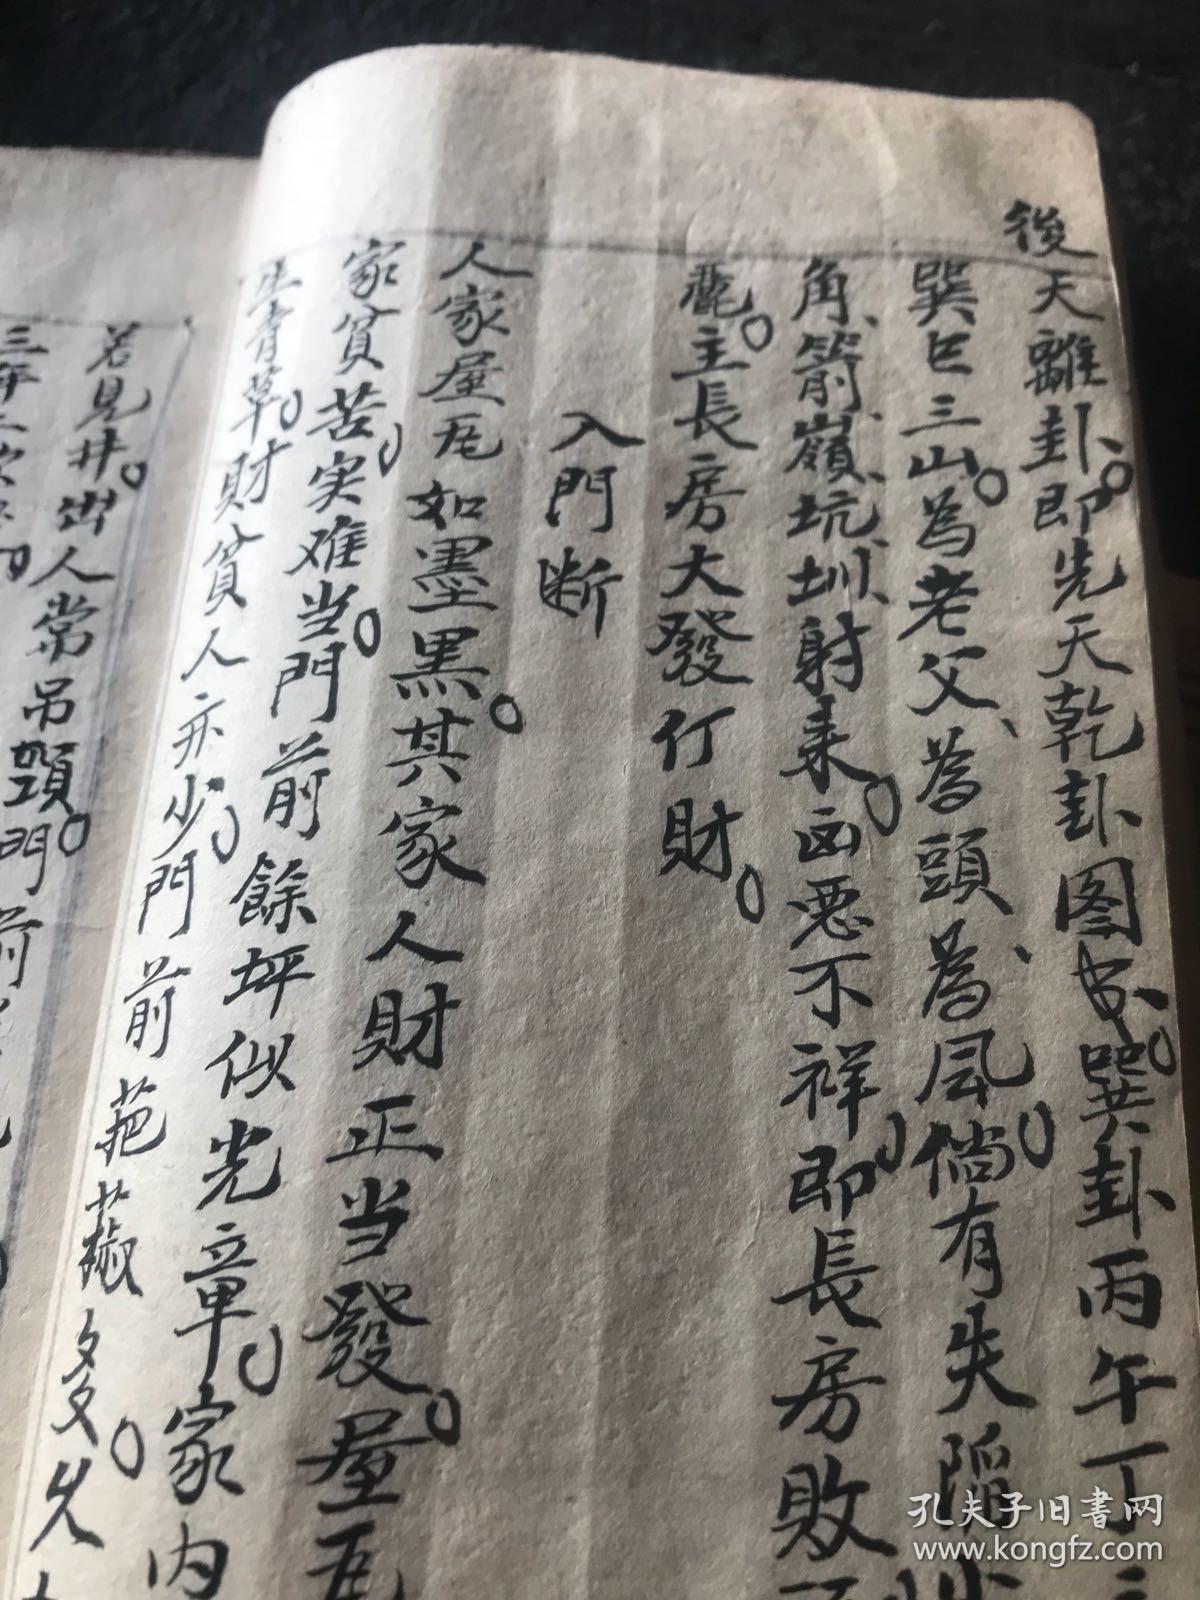 後天離卦。即先天乾卦图也。巽卦丙午丁三
巽巳三山。為老父、為頭、為风。倘有失陷
角、箭、嶺、坑、圳、射来。凶恶不祥。即長房敗
麗。主長房大發仃財。
入門断
人家屋瓦如墨黑。其家人財正当發。屋瓦
家貧苦。实难当。門前餘坪似光章。家内
生青草。財貧人亦少。門前葩菽多。
若見井。出人常吊頸。門前
三年
孔夫子旧書网
www.kongfz.com